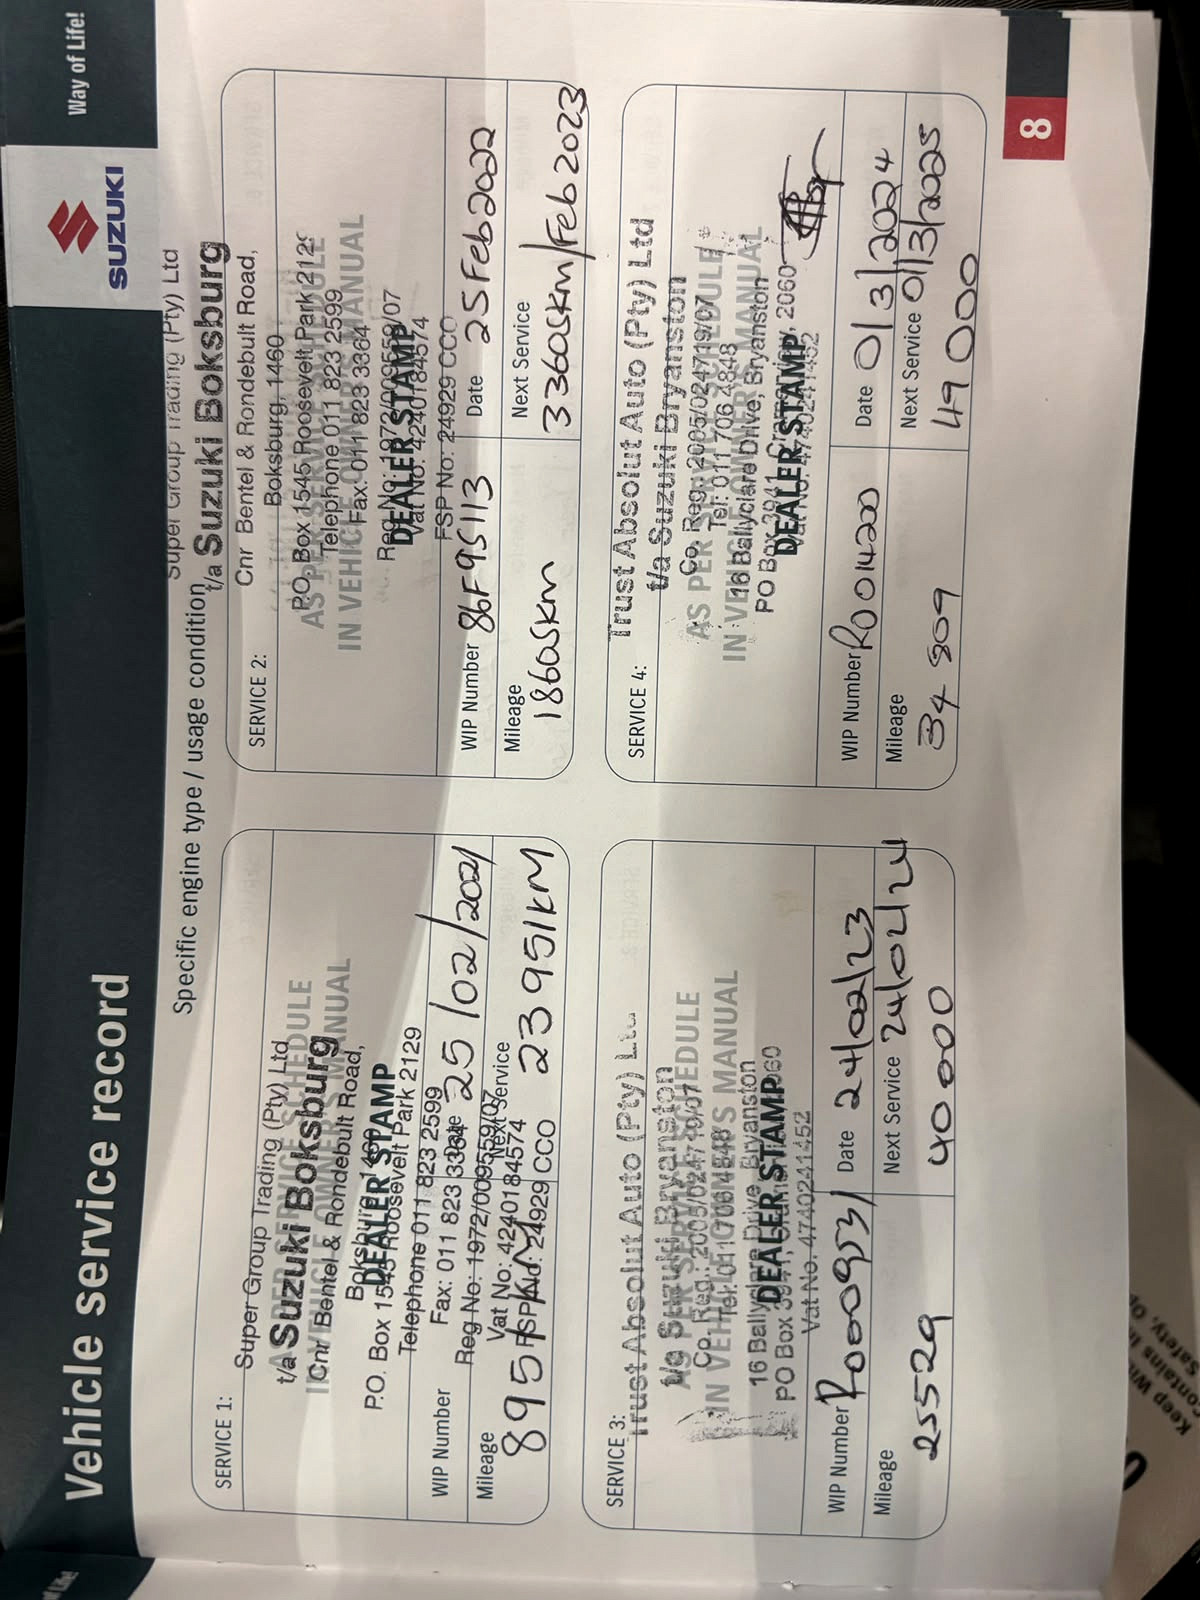 Vehicle service record
SUZUKI
Way of Life!
Specific engine type / usage condition
SERVICE 1:
Super Group Trading (Pty) Ltd
t/a Suzuki Boksburg
AS PER SERVICE SCHEDULE
IN VEHICLE OWNER'S MANUAL
Cnr Bentel & Rondebult Road,
Boksburg, 1460
DEALER STAMP
P.O. Box 1545 Roosevelt Park 2129
Telephone 011 823 2599
Fax: 011 823 3364
Reg No: 1972/009559/07
Vat No: 4240184574
FSP No: 24929 CCO
WIP Number
Date 25/02/2021
Mileage
8951KM
Next Service
23951KM
SERVICE 2:
Super Group Trading (Pty) Ltd
t/a Suzuki Boksburg
Cnr Bentel & Rondebult Road,
Boksburg, 1460
P.O. Box 1545 Roosevelt Park 212
AS PER SERVICE SCHEDULE
Telephone 011 823 2599
IN VEHICLE OWNER'S MANUAL
Fax: 011 823 3364
Reg No: 1972/009559/07
DEALER STAMP
Vat No: 4240184574
FSP No: 24929 CCO
WIP Number 86F95113
Date 25 Feb 2022
Mileage
18605km
Next Service
33605km/Feb 2023
SERVICE 3:
Trust Absolut Auto (Pty) Ltd
t/a Suzuki Bryanston
AS PER SERVICE SCHEDULE
Co. Reg.: 2005/024719/07
IN VEHICLE OWNER'S MANUAL
Tel: 011 706 4848
16 Ballyclare Drive, Bryanston
DEALER STAMP
PO Box 3941, Cramerview, 2060
Vat No. 4740241452
WIP Number R0009531
Date 24/02/23
Mileage
25529
Next Service 24/02/24
40000
SERVICE 4:
Trust Absolut Auto (Pty) Ltd
t/a Suzuki Bryanston
Co. Reg.: 2005/024719/07
AS PER SERVICE SCHEDULE
Tel: 011 706 4848
IN VEHICLE OWNER'S MANUAL
16 Ballyclare Drive, Bryanston
PO Box 3941, Cramerview, 2060
DEALER STAMP
Vat No. 4740241452
WIP Number R0014200
Date 01/3/2024
Mileage
34 809
Next Service 01/3/2025
49000
8
Keep
Safety, Op